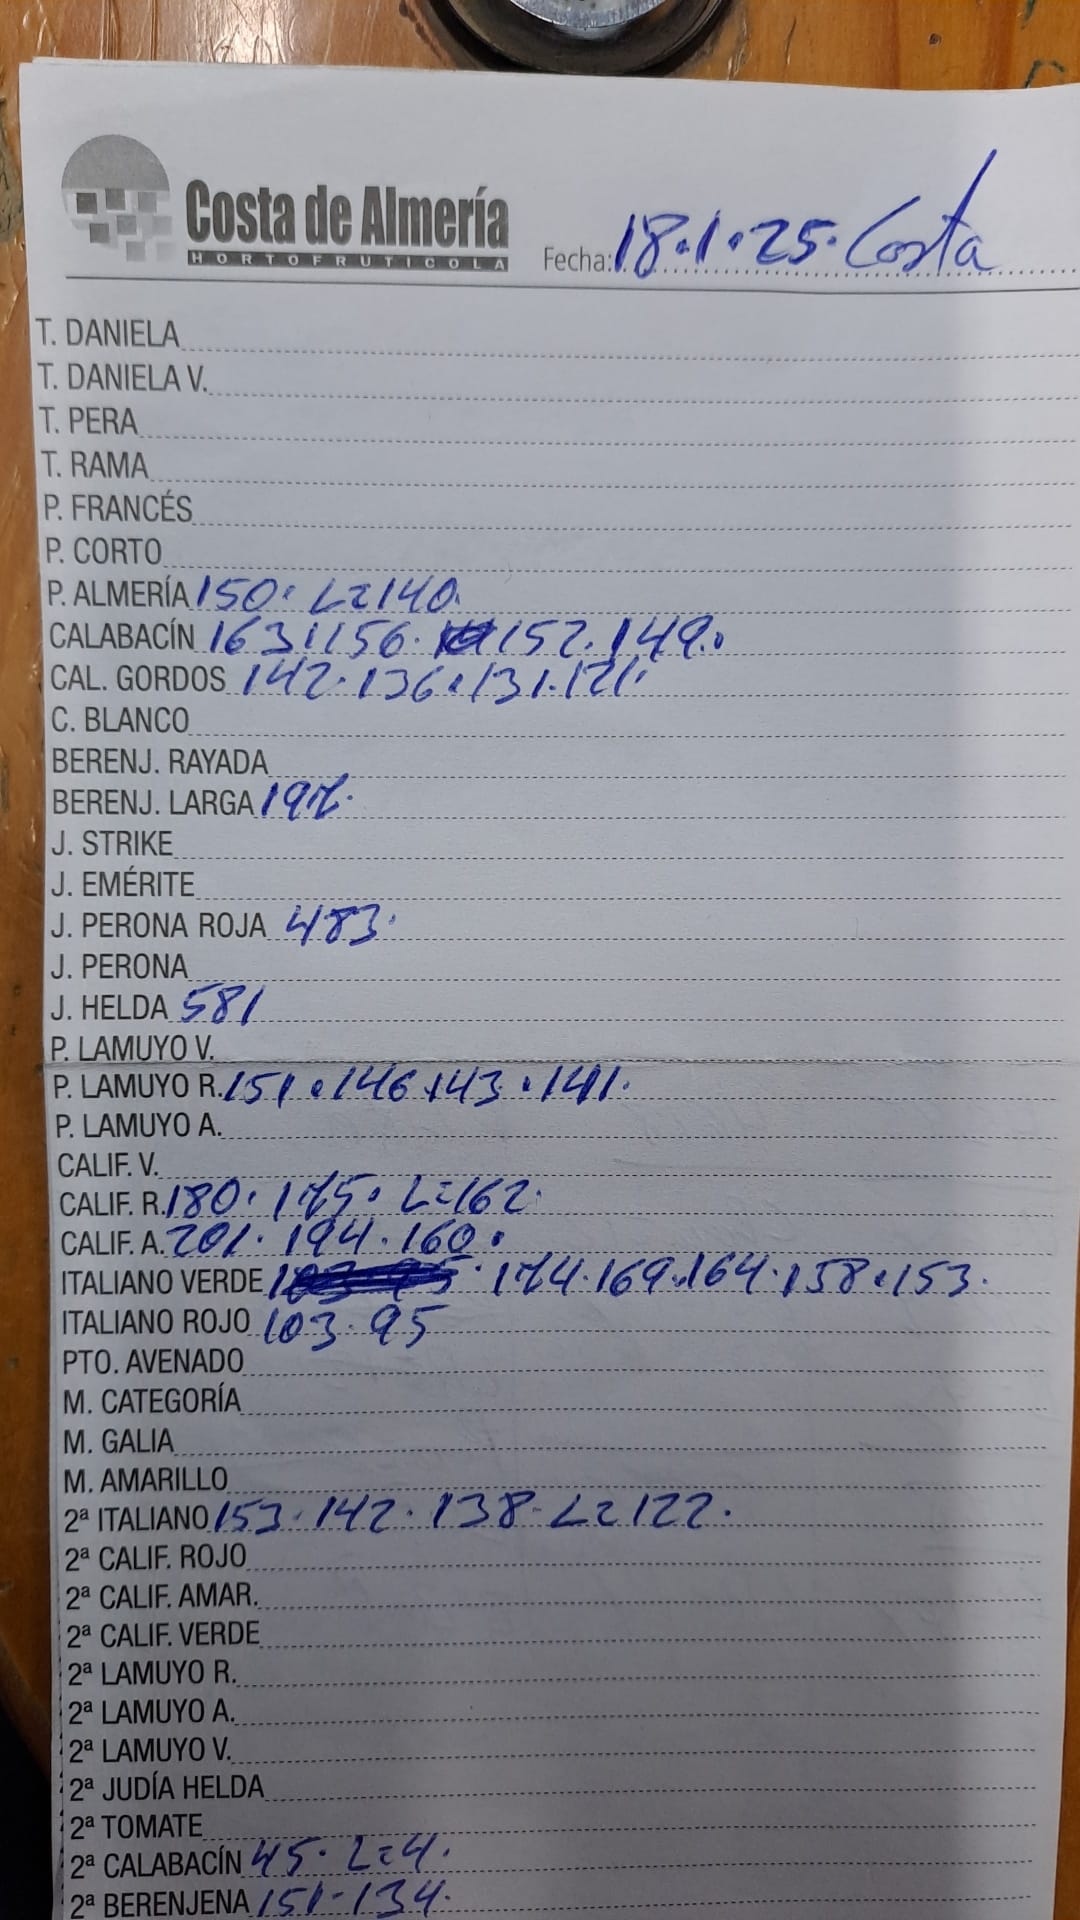 Costa de Almería
HORTOFRUTICOLA
Fecha: 18.1.25. Costa
T. DANIELA
T. DANIELA V.
T. PERA
T. RAMA
P. FRANCÉS
P. CORTO
P. ALMERÍA 150. L=140.
CALABACÍN 163.156. 152.149.
CAL. GORDOS 142.136.131.121.
C. BLANCO
BERENJ. RAYADA
BERENJ. LARGA 197.
J. STRIKE
J. EMÉRITE
J. PERONA ROJA 483.
J. PERONA
J. HELDA 581
P. LAMUYO V.
P. LAMUYO R. 151.146.143.141.
P. LAMUYO A.
CALIF. V.
CALIF. R. 180. 175. L=162.
CALIF. A. 201. 194. 160.
ITALIANO VERDE 174.169.164.158.153.
ITALIANO ROJO 103.95
PTO. AVENADO
M. CATEGORÍA
M. GALIA
M. AMARILLO
2ª ITALIANO 153.142.138-L=122.
2ª CALIF. ROJO
2ª CALIF. AMAR.
2ª CALIF. VERDE
2ª LAMUYO R.
2ª LAMUYO A.
2ª LAMUYO V.
2ª JUDÍA HELDA
2ª TOMATE
2ª CALABACÍN 45. L=4.
2ª BERENJENA 151-134.